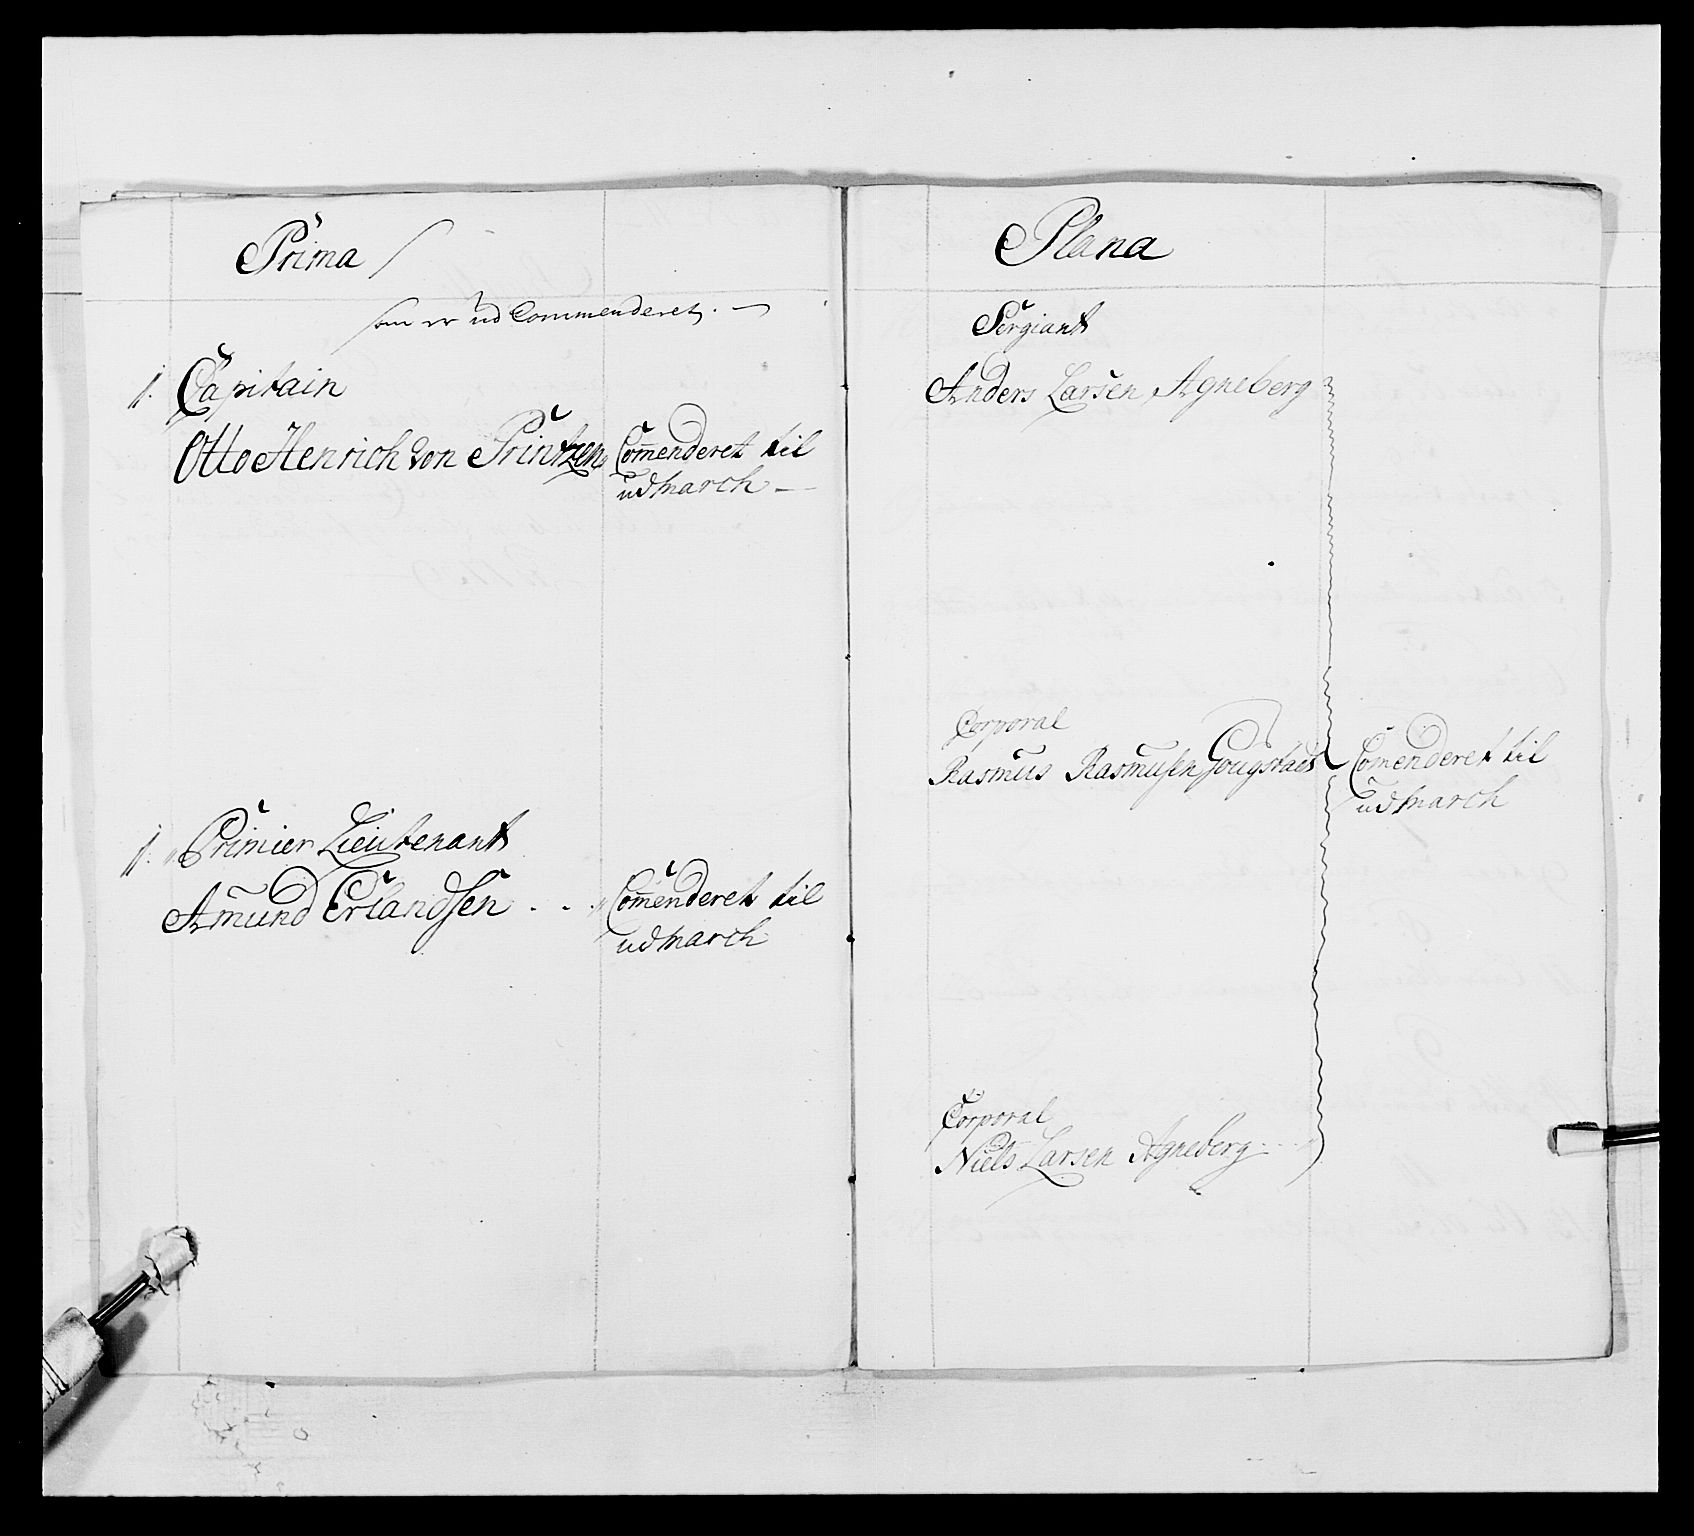 Prima
som er ud Commenderet. —
1. Capitain
Otto Henrich von Printzen Com̄enderet til
udmarch —
1. Primier Lieutenant
Am̄und Erlandsen . . . Com̄enderet til
udmarch
Plana
Sergiant
Anders Larsen Agneberg
Corporal
Rasmus Rasmusen Gougstad Comenderet til
udmarch
Corporal
Niels Larsen Agneberg